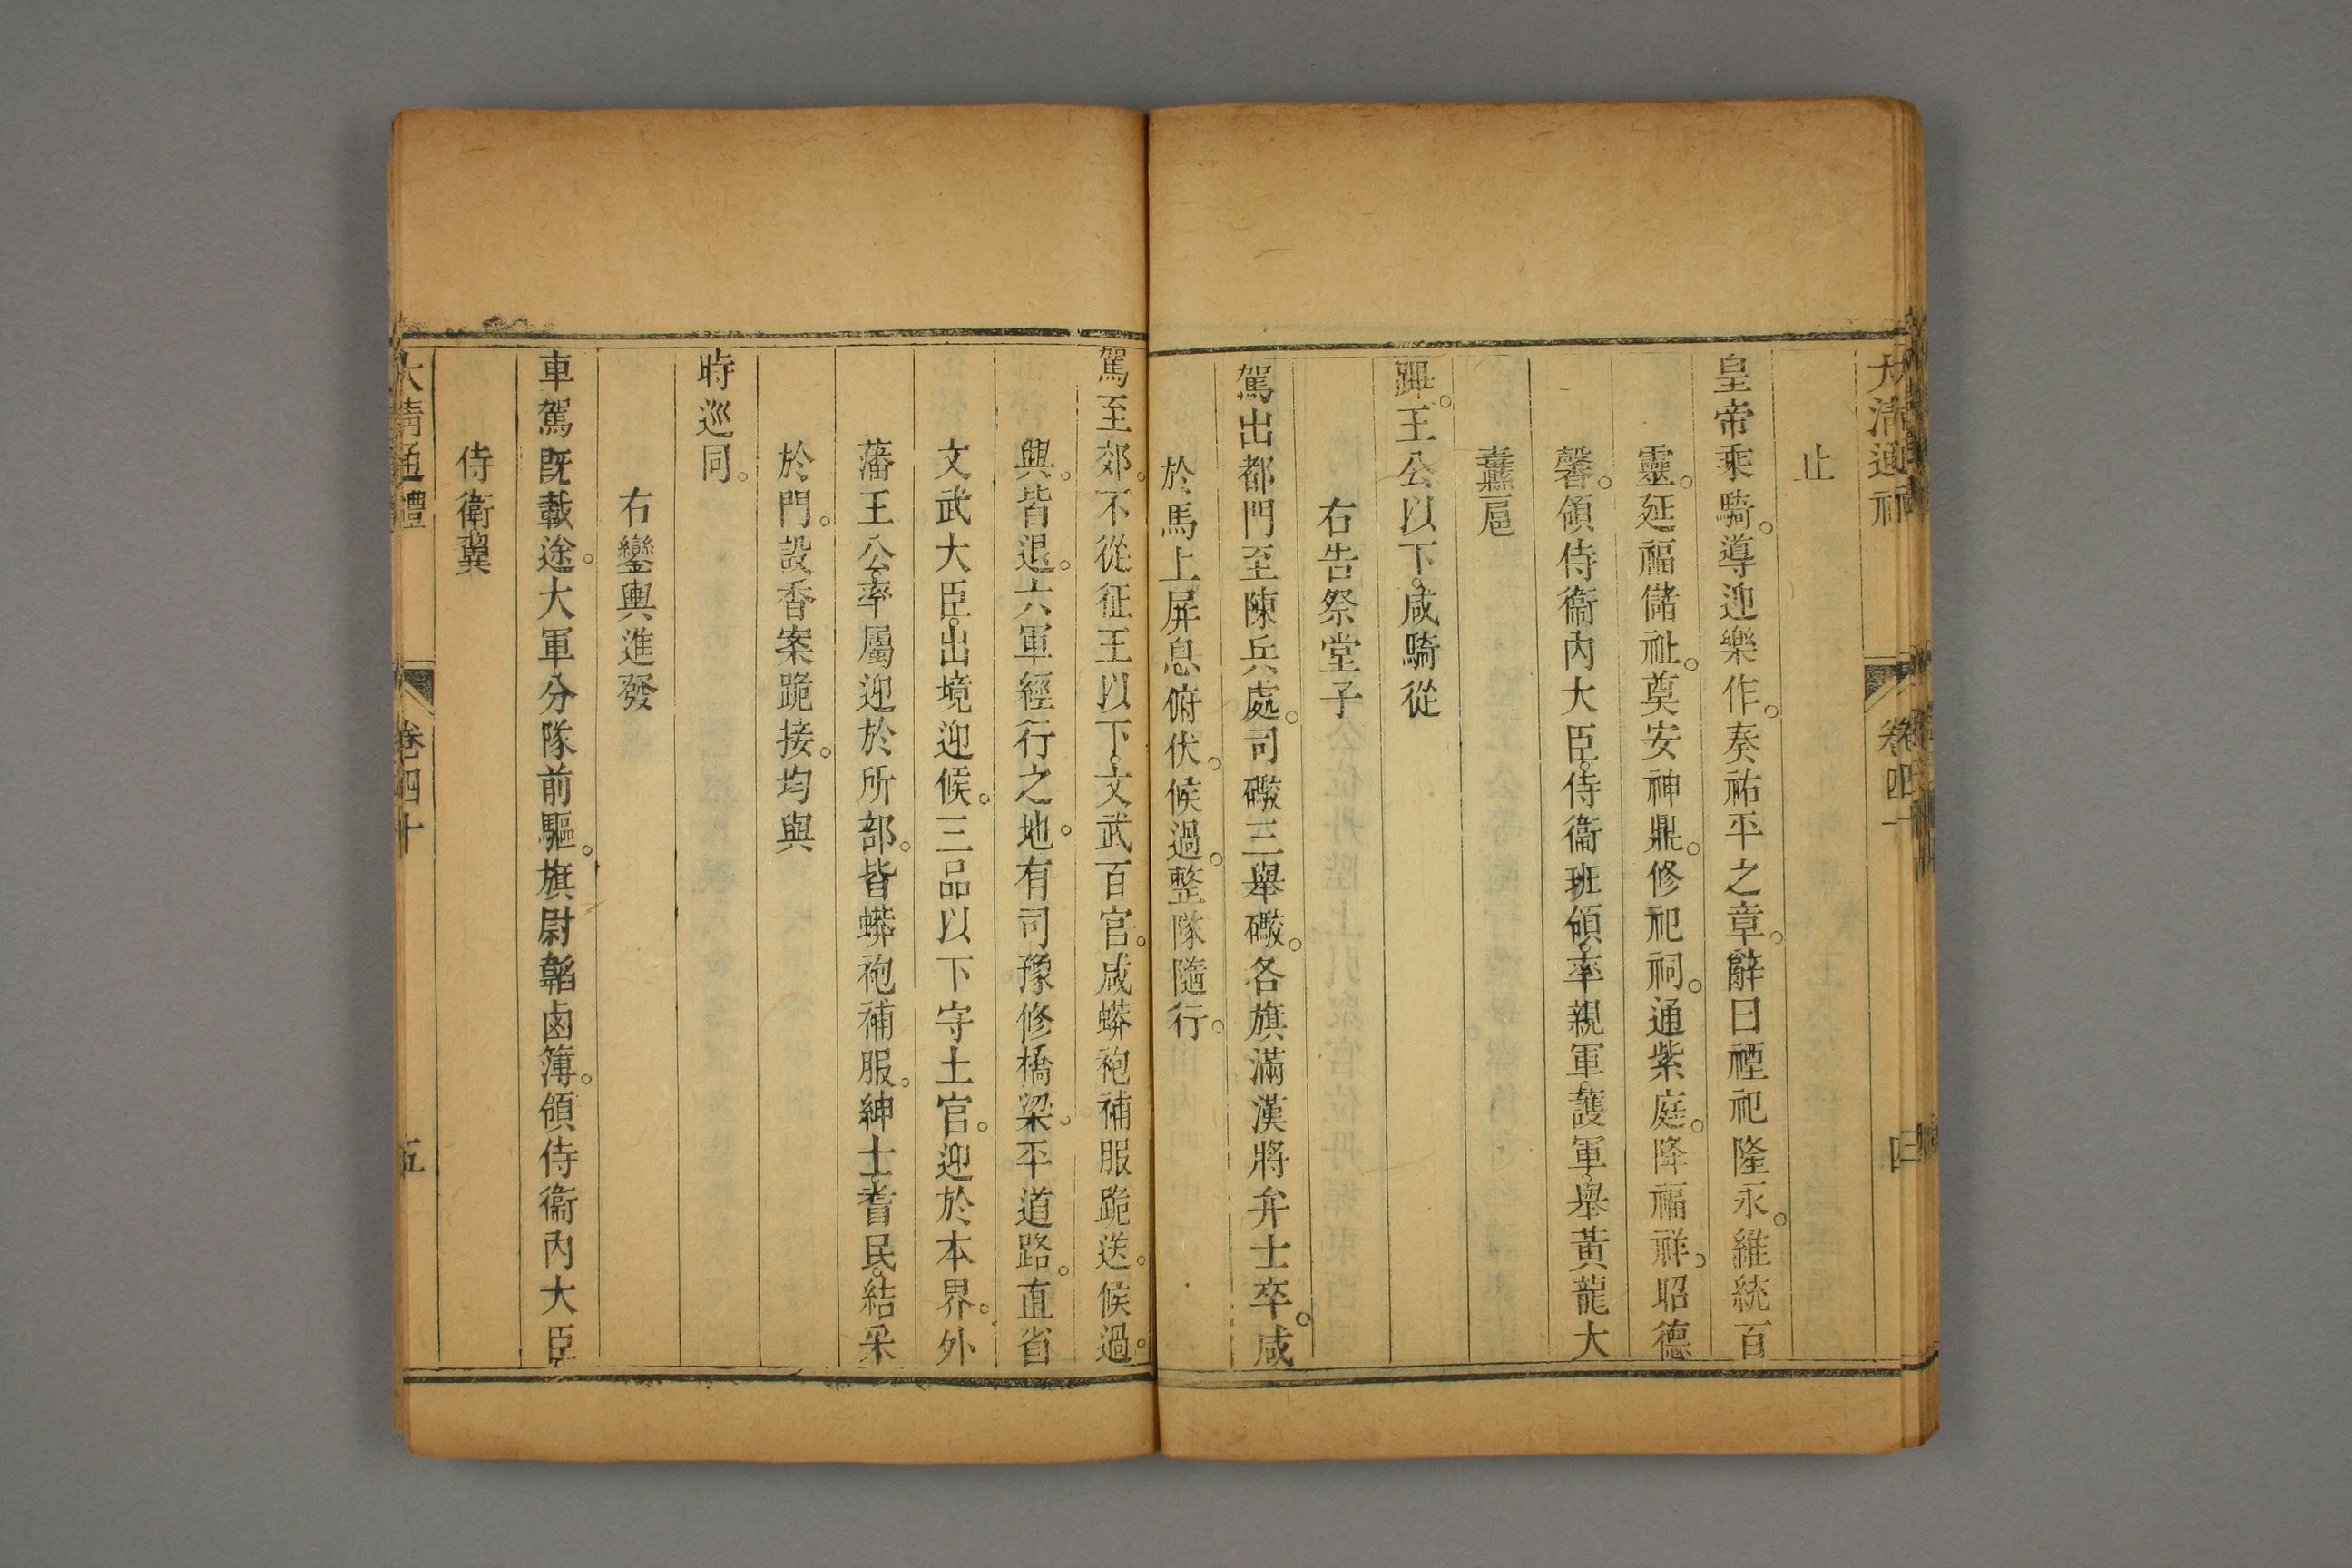 大清通禮 卷四十 四
止
皇帝乘騎。導迎樂作。奏祐平之章。辭曰禋祀隆永。維統百
靈。延福儲祉。奠安神鼎。修祀祠。通紫庭。降福祥。昭德
馨。領侍衞內大臣。侍衞班領。率親軍。護軍。舉黃龍大
纛扈
蹕。王公以下。咸騎從
右告祭堂子
駕出都門至陳兵處。司礮三舉礮。各旗滿漢將弁士卒。咸
於馬上屏息俯伏。候過。整隊隨行。
駕至郊。不從征王以下。文武百官。咸蟒袍補服跪送。候過。
興。皆退。六軍經行之地。有司豫修橋梁。平道路。直省
文武大臣。出境迎候。三品以下守土官。迎於本界。外
藩王公。率屬迎於所部。皆蟒袍補服。紳士。耆民。結采
於門。設香案跪接。均與
時巡同。
右鑾輿進發
車駕旣載途。大軍分隊前驅。旗尉韜鹵簿。領侍衞內大臣。
侍衛翼
大清通禮 卷四十 五